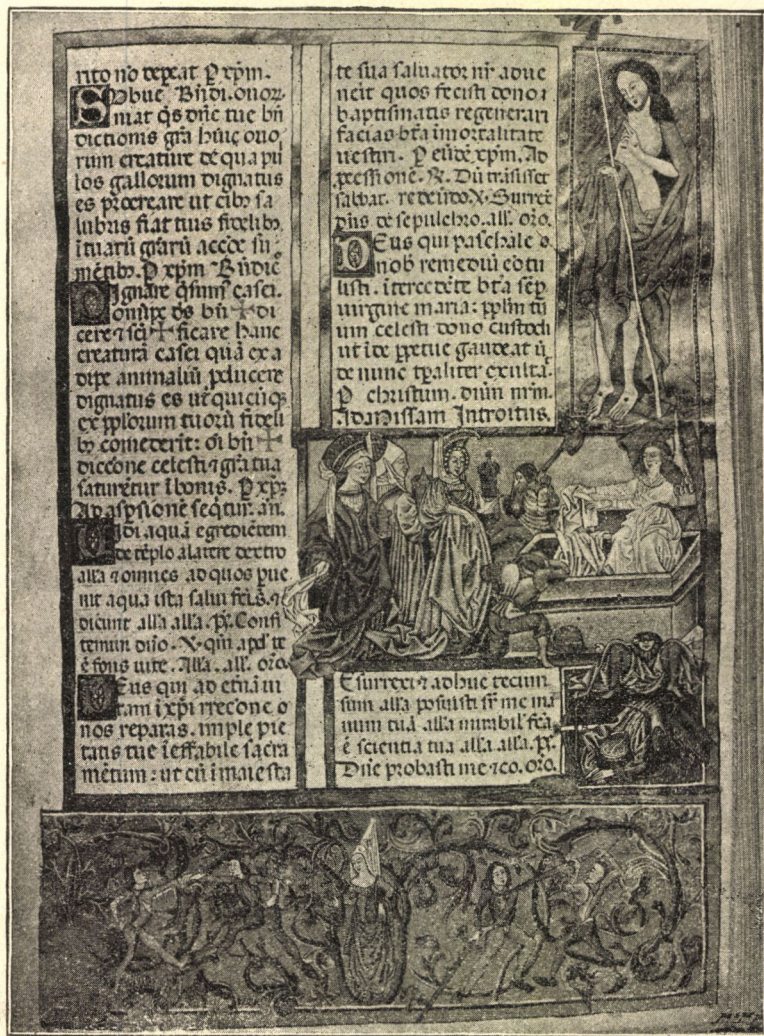 rito no depeat P xpm.
Subue Bñdi. ouor.
niat qs dñe tue bñ
dictionis gra huic ouo
rum creature de qua pu
los gallorum dignatus
es procreare ut cibꝰ sa
lubris fiat tuis fidelibꝰ
ituarũ grarũ accõe su
mẽtibꝰ. P xpm Bñdic
Dignare casei.
ompe ds bñ✝di
cere ⁊ scĩ✝ficare hanc
creaturã casei quã ex a
dipe animaliũ pducere
dignatus es ut quicũqꝫ
ex pplorum tuorũ fideli
bꝰ comederit: oi bñ✝
diccone celesti ⁊ gra tua
saturetur i bonis. P xpꝫ
Ad aspsionẽ seqtur. an.
Vidi aquã egredientem
de tẽplo a latere dextro
alla ⁊ omnes ad quos pue
nit aqua ista salui fci s̃ ⁊
dicunt alla alla. Ps. Confi
temini dño. V. qm apd te
ẽ fons uite. Alla. all. oro.
Deus qui ad etnã ui
tam i xpi rrecõne
nos reparas. imple pie
tatis tue ieffabile sacra
mẽtum: ut cũ i maiesta
te sua saluator nr adue
nerit quos fecisti dono
baptismatis regenerari
facias bta imortalitate
uestiri. P eũdẽ xpm. Ad
pcessionẽ. R. Dũ trãsisset
sabbat. redeũdo. V. Surrex
dñs de sepulchro. all. oro.
Deus qui paschale
nob remediũ cõtu
listi. itercedẽte bta sẽp
uirgine maria: pplm tu
um celesti dono custodi
ut ide ppetue gaudeat
de nunc tpaliter exulta.
P christum. dñm nrm.
Ad a Missam Introitus.
Esurrexi ⁊ adhuc tecum
sum alla posuisti sr me ma
num tuã alla mirabil fca
ẽ scientia tua alla alla. Ps.
Dñe probasti me ⁊ co. oro.